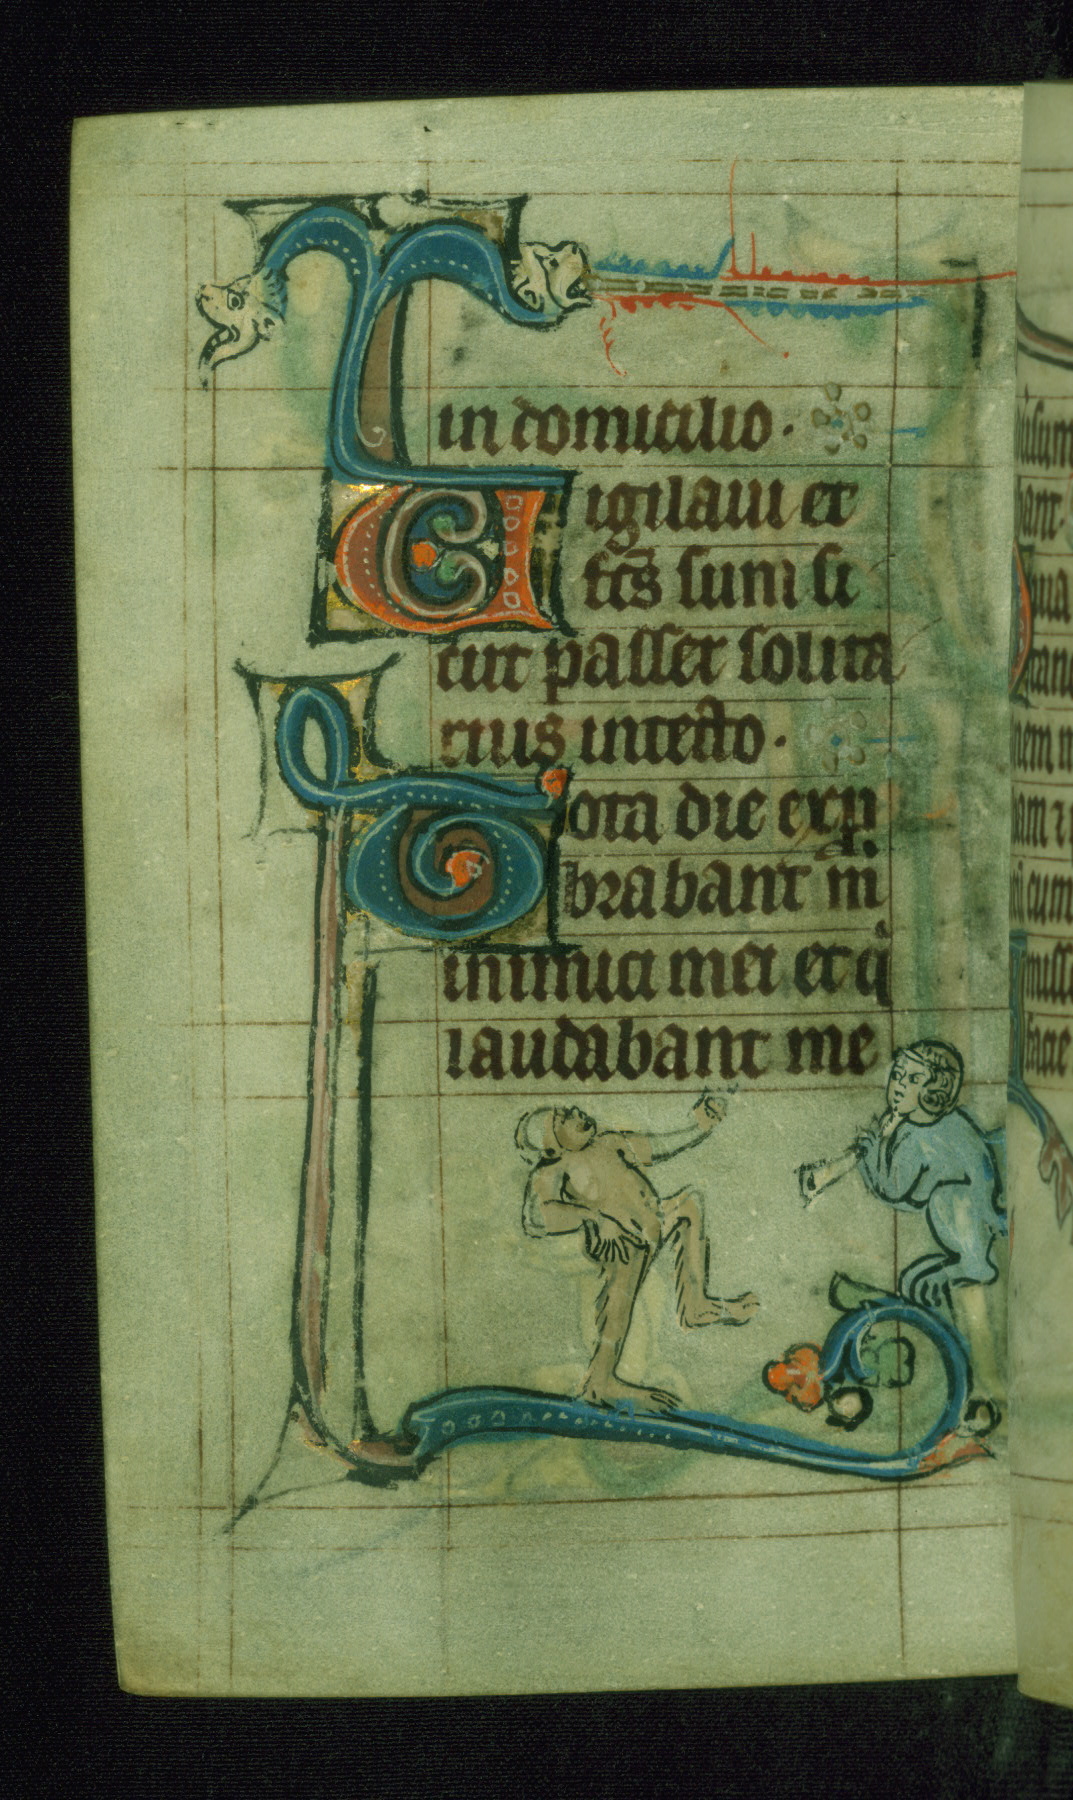 in domicilio.
Vigilaui et
fc̄s sum si
cut passer solita
rius intecto.
Tota die exp
brabant m̄
inimici mei et q̇
laudabant me